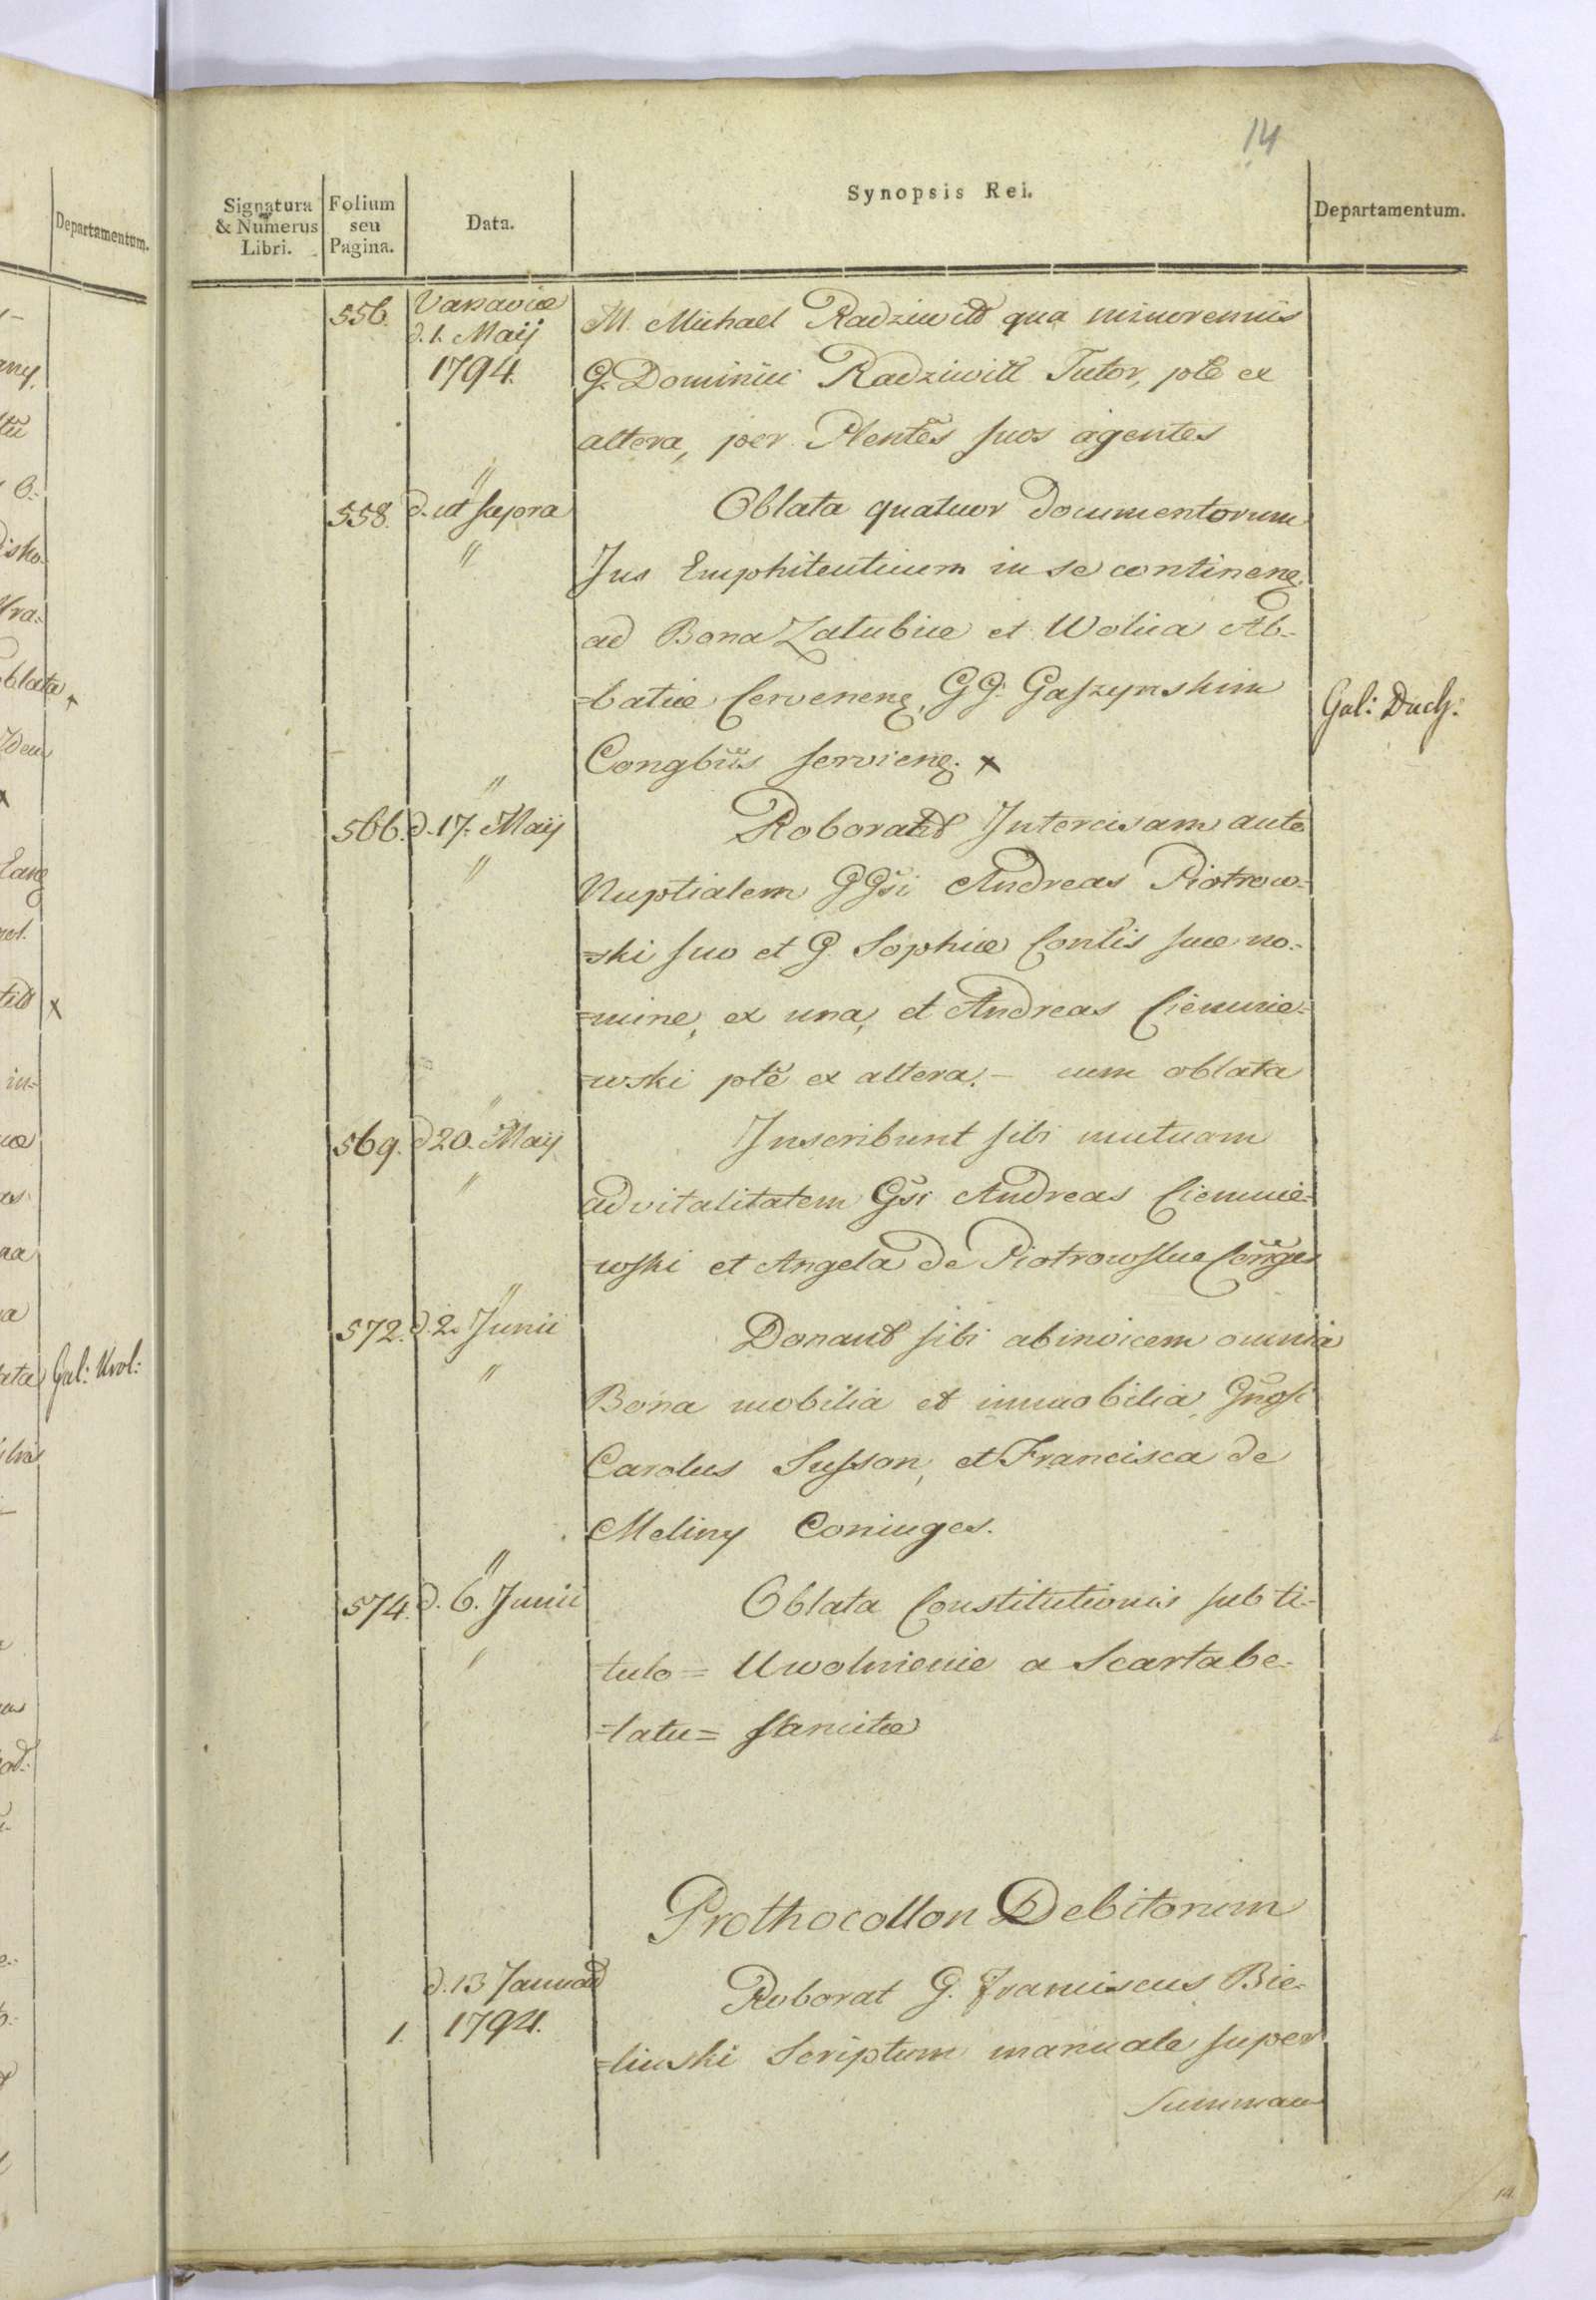 14
Signatura & Numerus Libri.
Folium seu Pagina.
Data.
Synopsis Rei.
Departamentum.
556. Varsaviæ d. 1. Maij 1794.
M. Michael Radziwiłł qua minorennis
G. Dominici Radziwiłł Tutor, pte ex
altera, per Plentes suos agentes
558. d. ut supra
Oblata quatuor Documentorum
Jus Emphiteuticum in se continen.
ad Bona Załubice et Wolica Ab=
=batiæ Cervenen. GG. Gaszynskim
Congbus servien. x
Gal: Duch:
566. d. 17. Maij
Roborant Intercisam ante
Nuptialem GGsi Andreas Piotrow=
=ski suo et G. Sophiæ Contis suæ no=
=mine, ex una, et Andreas Ciemnie=
=wski pte ex altera. — cum oblata
569. d 20. Maij
Inscribunt sibi mutuam
advitalitatem Gsi Andreas Ciemnie=
=wski et Angela de Piotrowskie Conges
572. d. 2. Junii
Donant sibi abinvicem omnia
Bona mobilia et immobilia, Gnosi
Carolus Susson, et Francisca de
Meliny Coniuges.
574. d. 6. Junii
Oblata Constitutionis sub ti=
=tulo = Uwolnienie a Scartabe=
=latu = sancitæ
Prothocollon Debitorum
1. d. 13 Januarii 1794.
Roborat G. Franciscus Bie=
=linski Scriptum manuale super
summam
14.
Departamentum.
Gal: Krol: